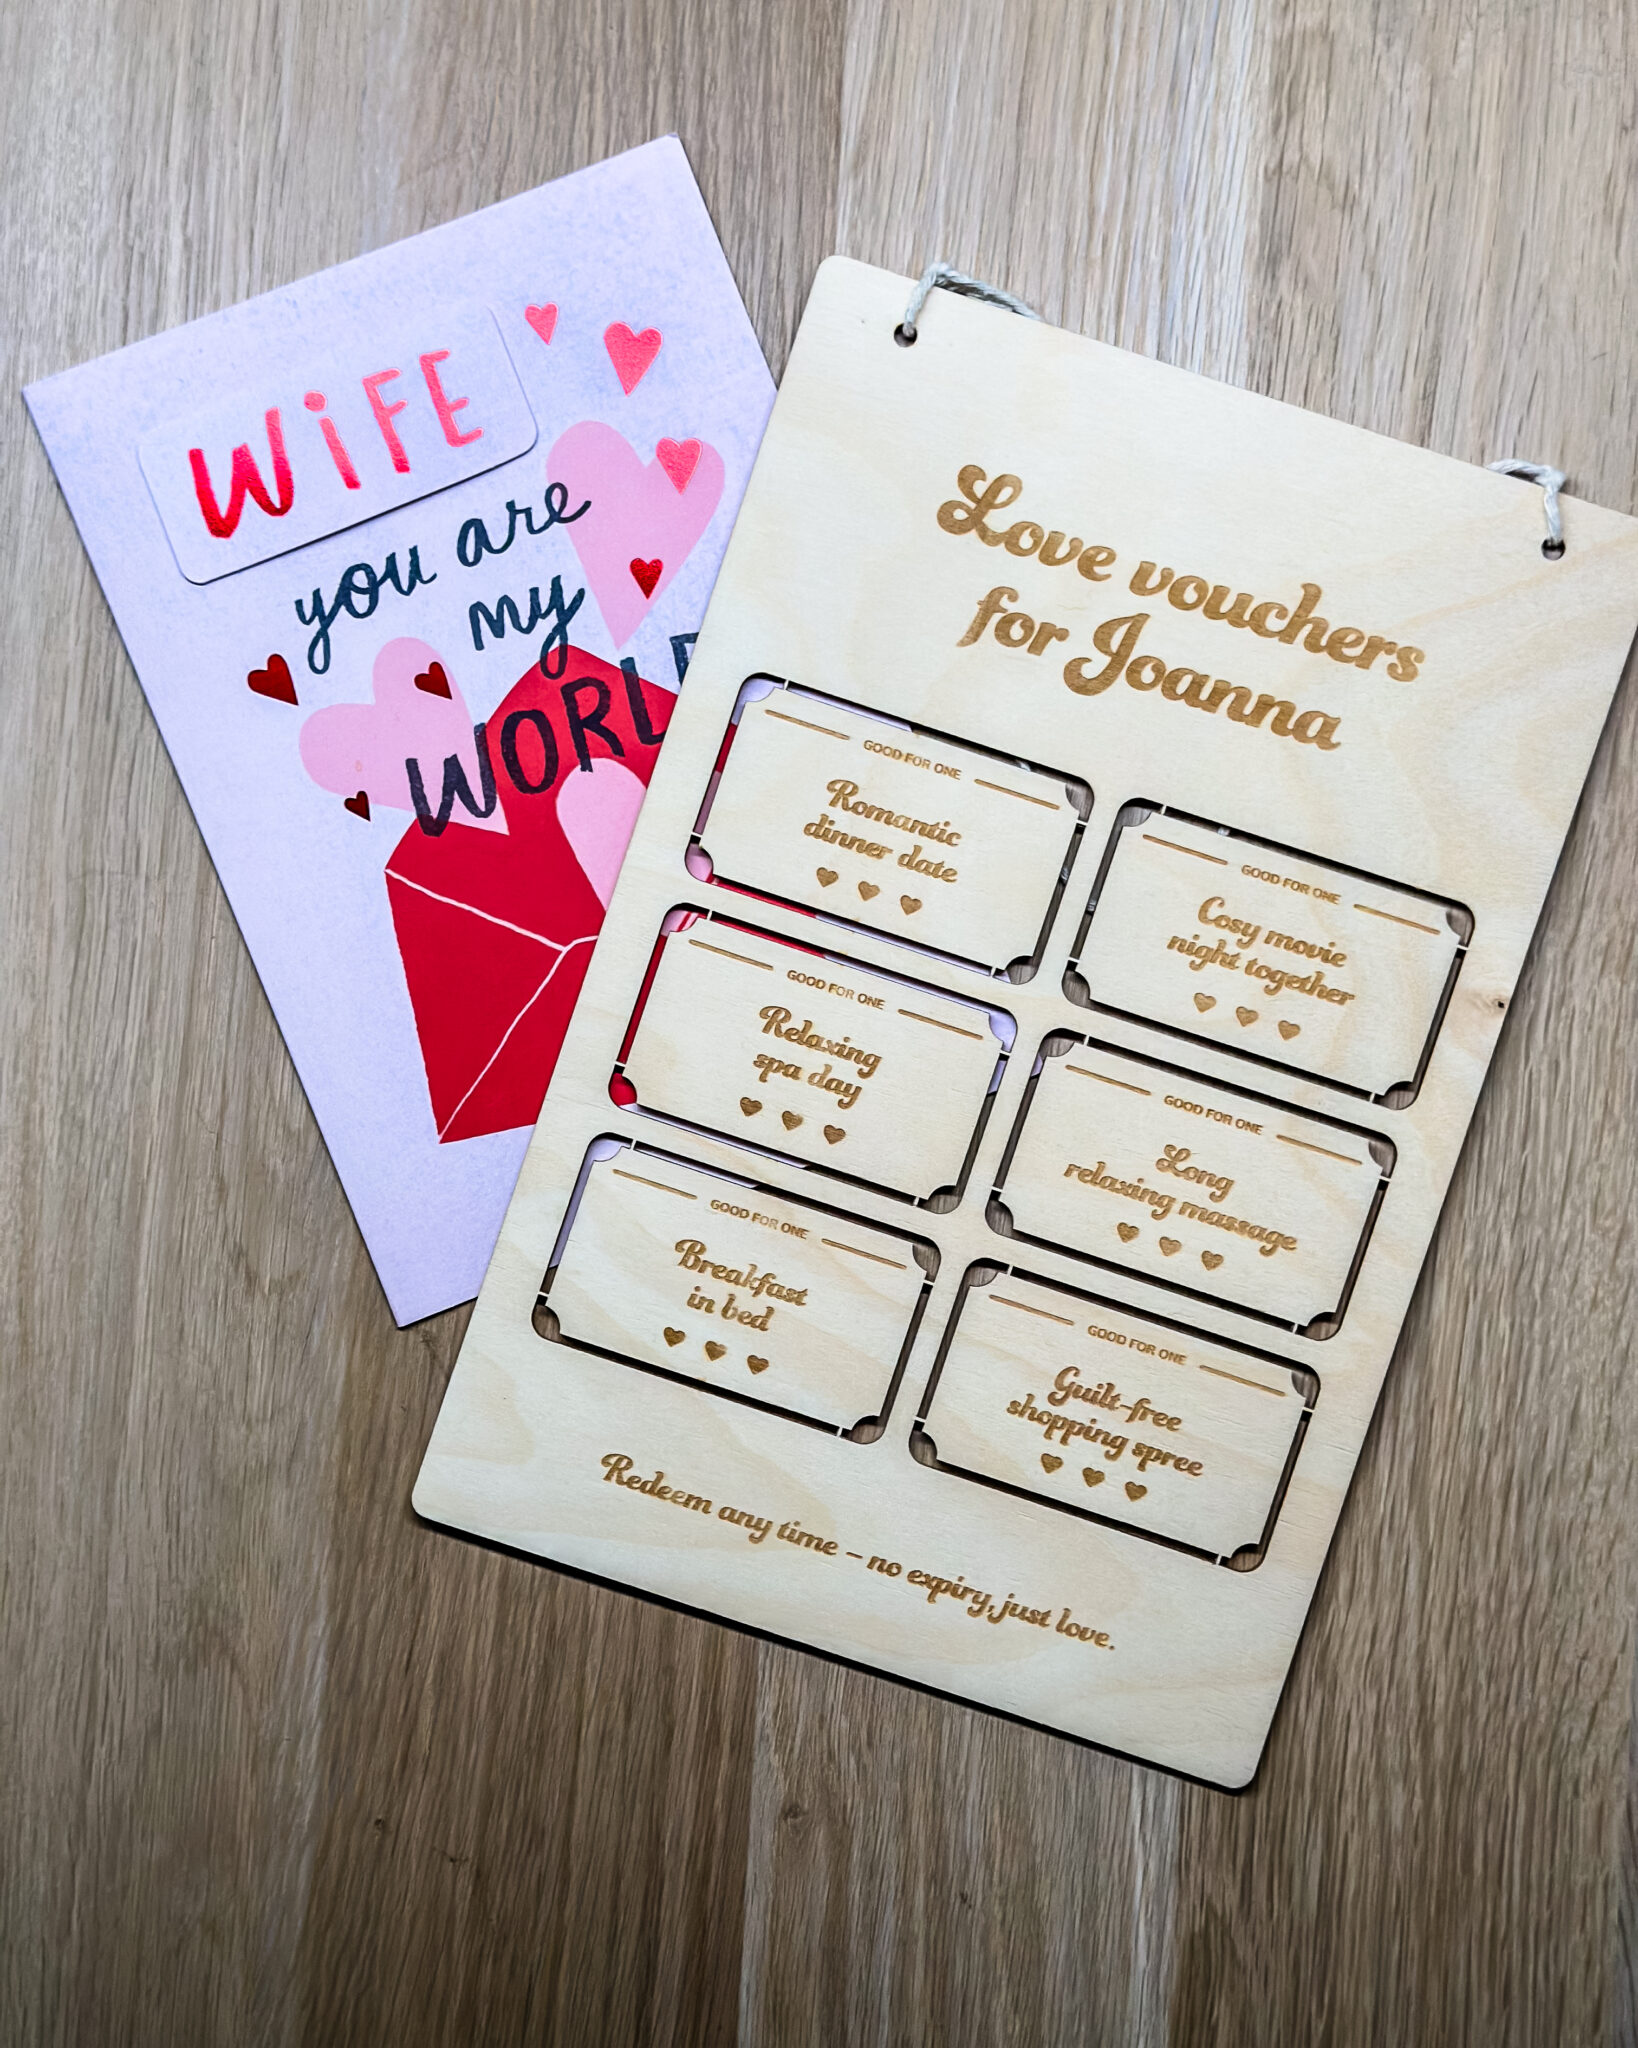 WiFE
you are
my
WORL
Love vouchers
for Joanna
GOOD FOR ONE
Romantic
dinner date
GOOD FOR ONE
Cosy movie
night together
GOOD FOR ONE
Relaxing
spa day
GOOD FOR ONE
Long
relaxing massage
GOOD FOR ONE
Breakfast
in bed
GOOD FOR ONE
Guilt-free
shopping spree
Redeem any time – no expiry, just love.